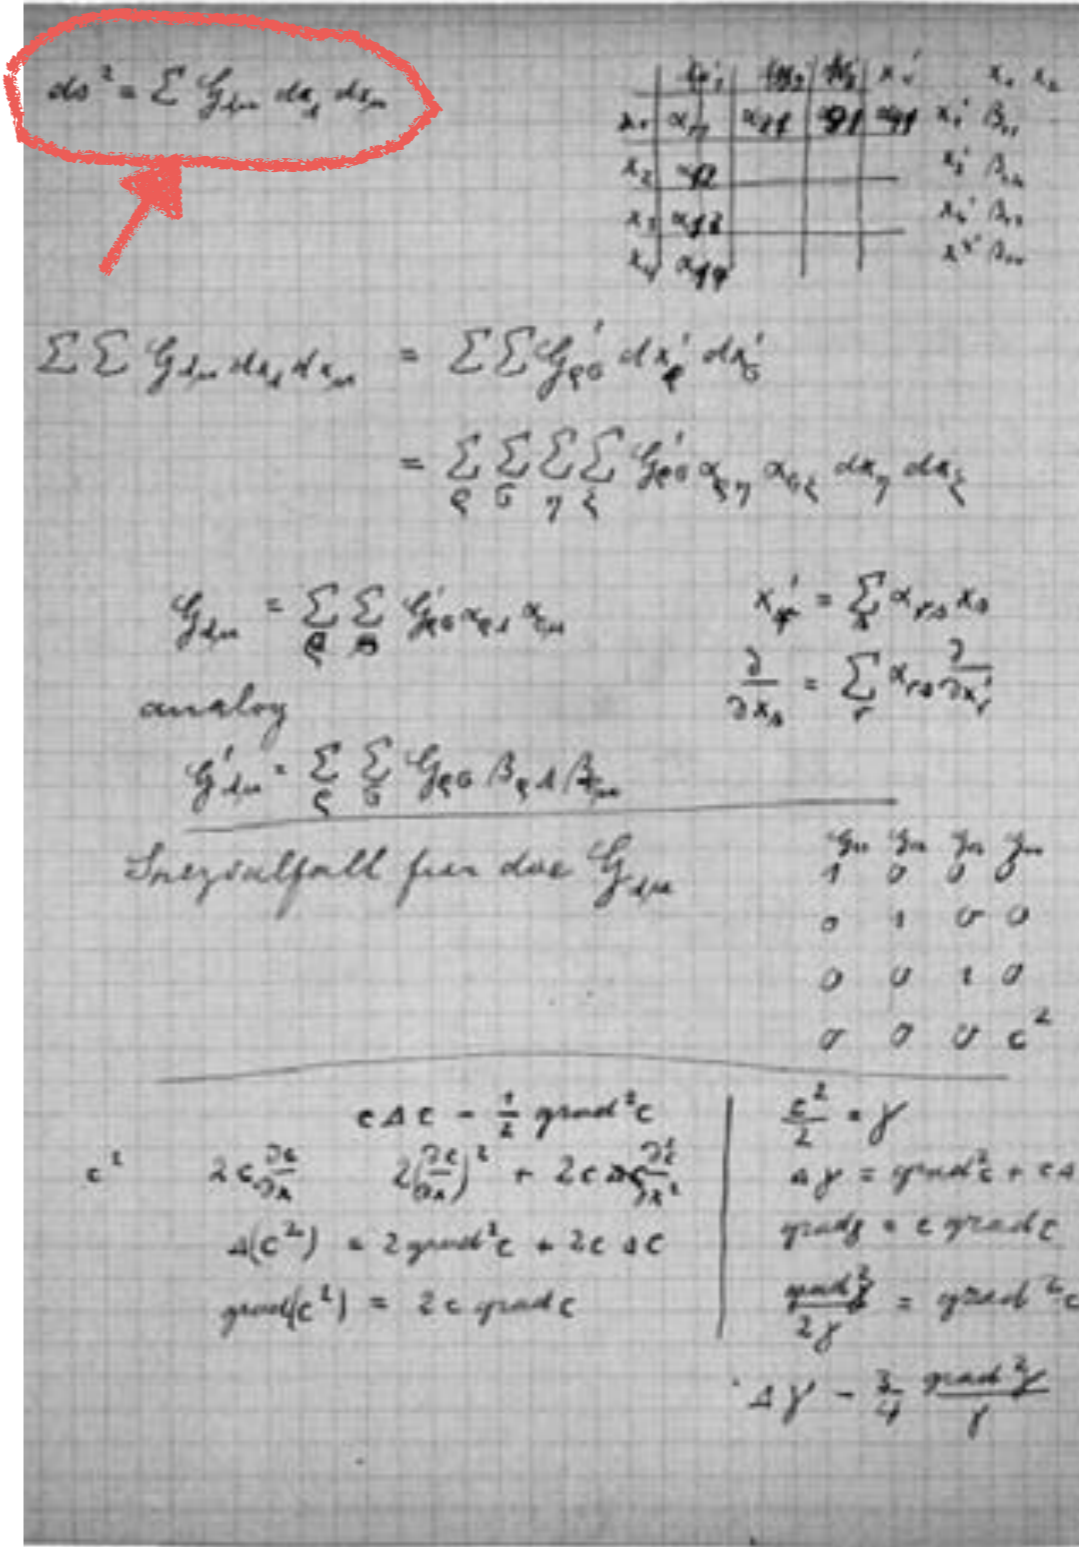 ds² = Σ G_λμ dx_λ dx_μ
x₁' x₂' x₃' x₄' x₁ x₂
x₁ α₁₁ α₂₁ α₃₁ α₄₁ x₁' β₁₁
x₂ α₁₂ x₂' β₁₂
x₃ α₁₃ x₃' β₁₃
x₄ α₁₄ x₄' β₁₄
Σ Σ G_λμ dx_λ dx_μ = Σ Σ G'_ρσ dx'_ρ dx'_σ
= Σ_ρ Σ_σ Σ_η Σ_ξ G'_ρσ α_ρη α_σξ dx_η dx_ξ
G_λμ = Σ_ρ Σ_σ G'_ρσ α_ρλ α_σμ
x'_r = Σ_s α_rs x_s
∂/∂x_s = Σ_r α_rs ∂/∂x'_r
analog
G'_λμ = Σ_ρ Σ_σ G_ρσ β_ρλ β_σμ
Spezialfall für das G_λμ
1 0 0 0
0 1 0 0
0 0 1 0
0 0 0 c²
c Δ c − ½ grad²c
c² 2c ∂c/∂x 2(∂c/∂x)² + 2c ∂²c/∂x²
Δ(c²) = 2 grad²c + 2c Δc
grad(c²) = 2c grad c
c²/2 = γ
Δγ = grad²c + cΔ
grad γ = c grad c
grad²γ/2γ = grad²c
Δγ − 3/4 grad²γ/γ